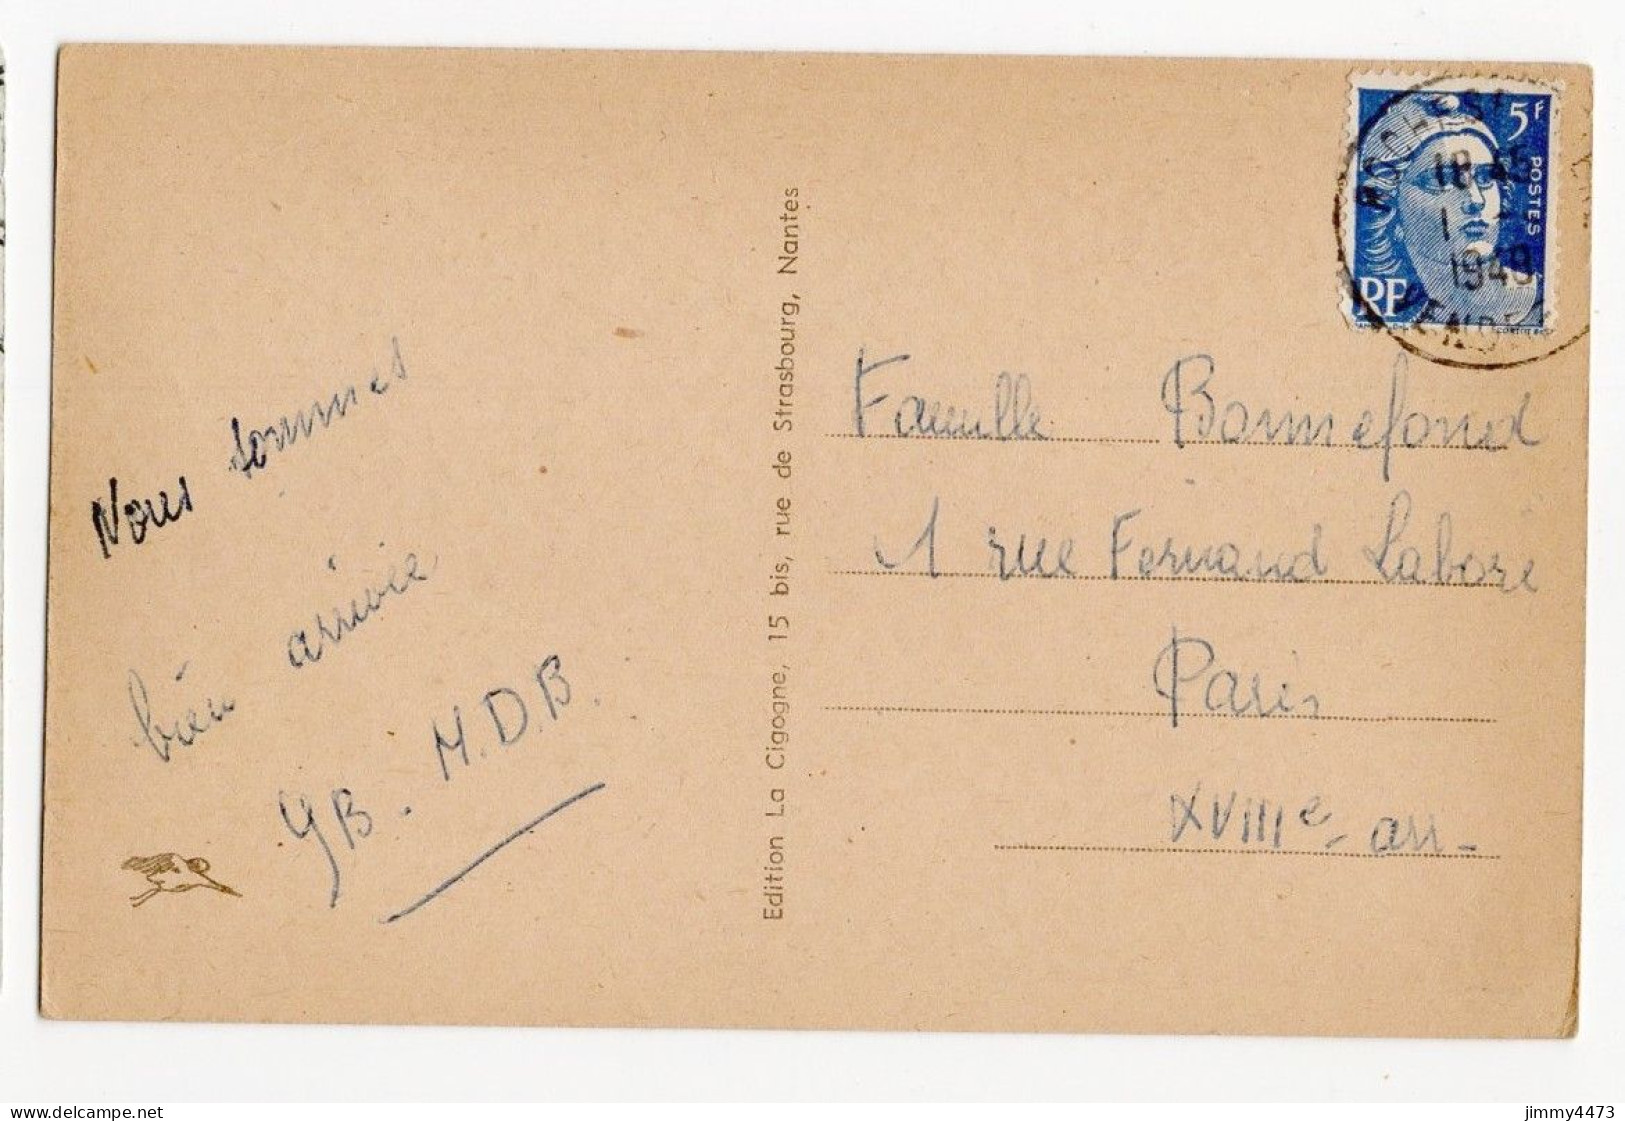 Nous sommes
bien arrivée
GB. M.D.B.
Edition La Cigogne, 15 bis, rue de Strasbourg, Nantes
5F
POSTES
RF
18 45
1949
VENDEE
Famille Bonnefond
1 rue Fernand Labori
Paris
XVIIIe arr
www.delcampe.net
jimmy4473